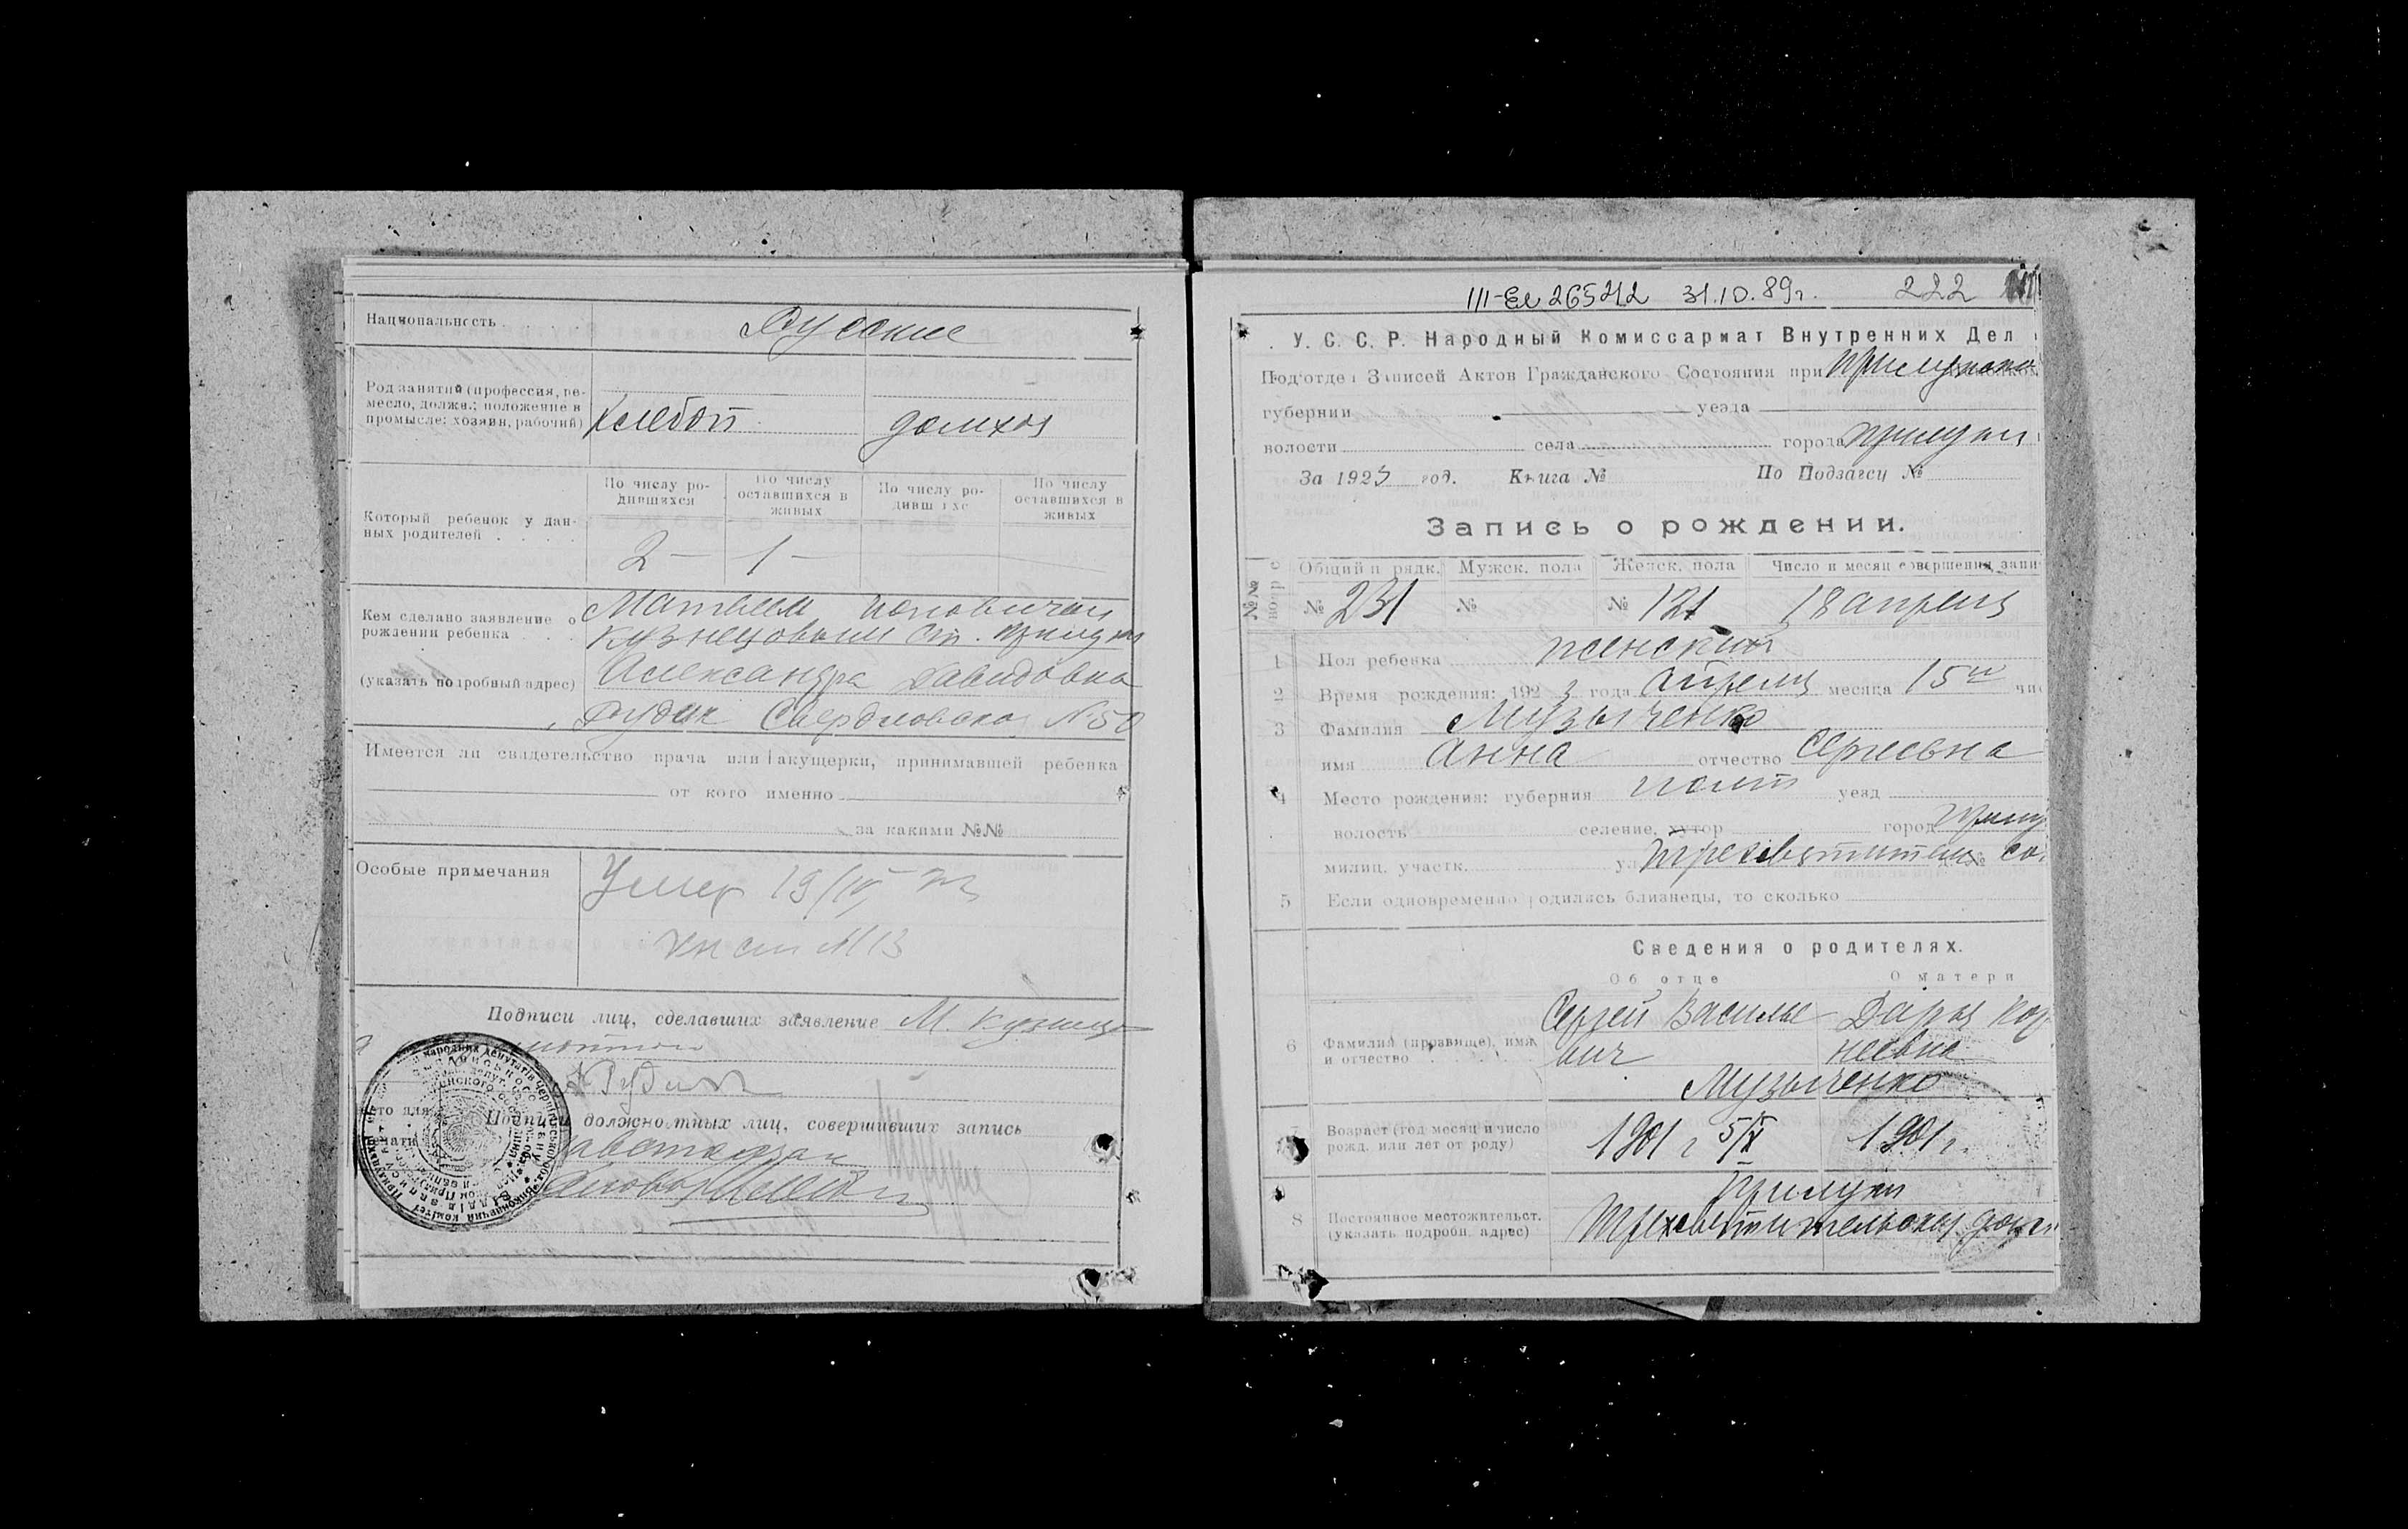 Национальность Русские
Род занятий (профессия, ре-
месло, должн.; положение в
промысле: хозяин, рабочий) Хлебоп домхоз
По числу ро-
дившихся По числу
оставшихся в
живых По числу ро-
дивш хс По числу
оставшихся в
живых
Который ребенок у дан-
ных родителей . . . . 2 – 1 –
Кем сделано заявление о
рождении ребенка . . .
(указать подробный адрес)
Матвеем
Кузнецовым ст.
Александра Давидовна
Рудик Свердловская № 50
Имеется ли свидетельство врача или акушерки, принимавшей ребенка
от кого именно
за какими №№
Особые примечания Умер 19/IV
№ 13
Подписи лиц, сделавших заявление М. Кузнецо
Рудик
Подписи должностных лиц, совершивших запись
III-Ел 265212 31.10.89г. 222
У. С. С. Р. Народный Комиссариат Внутренних Дел
Подотдел Записей Актов Гражданского Состояния при
губернии уезда
волости села города Прилуки
За 1923 год. Книга № По Подзагсу №
Запись о рождении.
Общий п рядк. Мужск. пола Женск. пола Число и месяц совершения запи
№ 231 № № 121 18 апреля
1 Пол ребенка женский
2 Время рождения: 192 3 года апреля месяца 15го чис
3 Фамилия Музыченко
имя Анна отчество Сергеевна
4 Место рождения: губерния Полт уезд
волость селение, хутор город Прилу
милиц. участк.
5 Если одновременно родились близнецы, то сколько
Сведения о родителях.
Об отце О матери
6 Фамилия (прозвище), имя
и отчество . . .
Сергей Василье
вич
Дарья Кор
неевна
Музыченко
7 Возраст (год месяц и число
рожд. или лет от роду) 1901 г 5/X 1901 г.
8 Постоянное местожительст.
(указать подробн. адрес)
Прилуки
Трехсвятительская